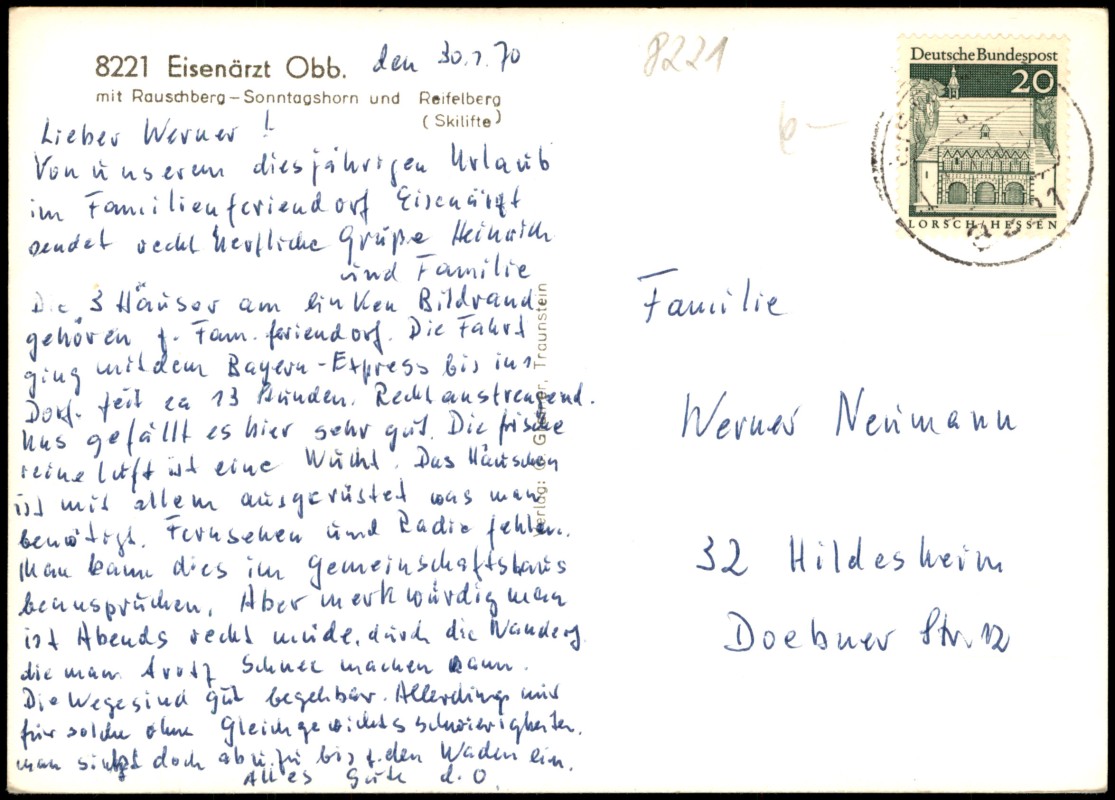 8221 Eisenärzt Obb. den 30.1.70
mit Rauschberg-Sonntagshorn und Reifelberg
(Skilifte)
Lieber Werner!
Von unserem diesjährigen Urlaub
im Familienferiendorf Eisenärzt
sendet recht herzliche Grüße Heinrich
und Familie
Die 3 Häuser am linken Bildrand
gehören z. Fam. feriendorf. Die Fahrt
ging mit dem Bayern-Express bis ins
Dorf. Zeit ca 13 Stunden. Recht anstrengend.
Uns gefällt es hier sehr gut. Die frische
reine Luft ist eine Wucht. Das Häuschen
ist mit allem ausgerüstet was man
benötigt. Fernsehen und Radio fehlen.
Man kann dies im Gemeinschaftshaus
beanspruchen. Aber merkwürdig man
ist Abends recht müde, durch die Wanderg.
die man trotz Schnee machen kann.
Die Wege sind gut begehbar. Allerdings nur
für solche ohne Gleichgewichtsschwierigkeiten.
man sinkt doch ab u. zu bis z. den Waden ein.
Alles Gute d. O.
Verlag: Traunstein
8221
6-
Deutsche Bundespost
20
LORSCH/HESSEN
Familie
Werner Neumann
32 Hildesheim
Doebner Str. 12